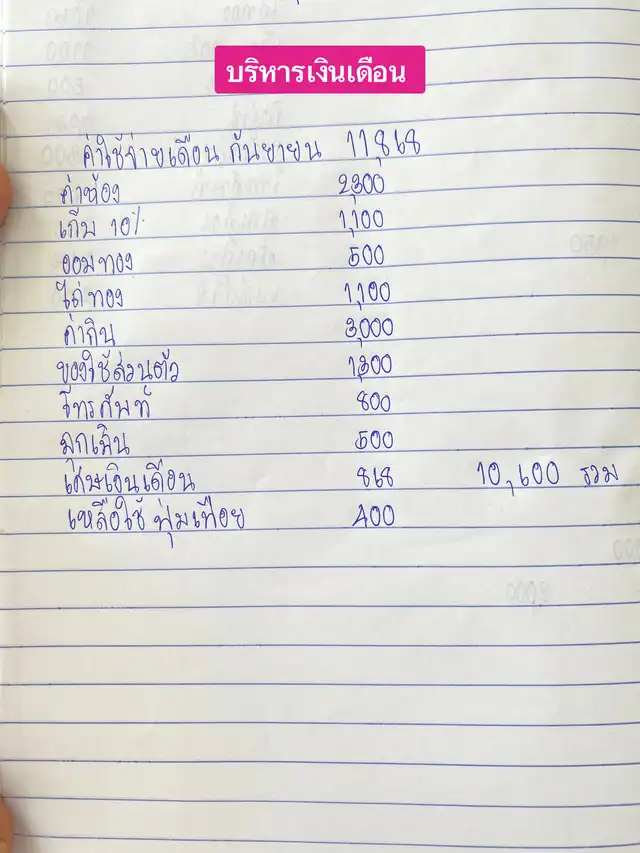 บริหารเงินเดือน
ค่าใช้จ่ายเดือน กันยายน 11868
ค่าห้อง 2,300
เก็บ 10% 1,100
ออมทอง 500
ไถ่ทอง 1,100
ค่ากิน 3,000
ของใช้ส่วนตัว 1,300
โทรศัพท์ 800
ฉุกเฉิน 500
เศษเงินเดือน 868 10,600 รวม
เหลือใช้ ฟุ่มเฟือย 400